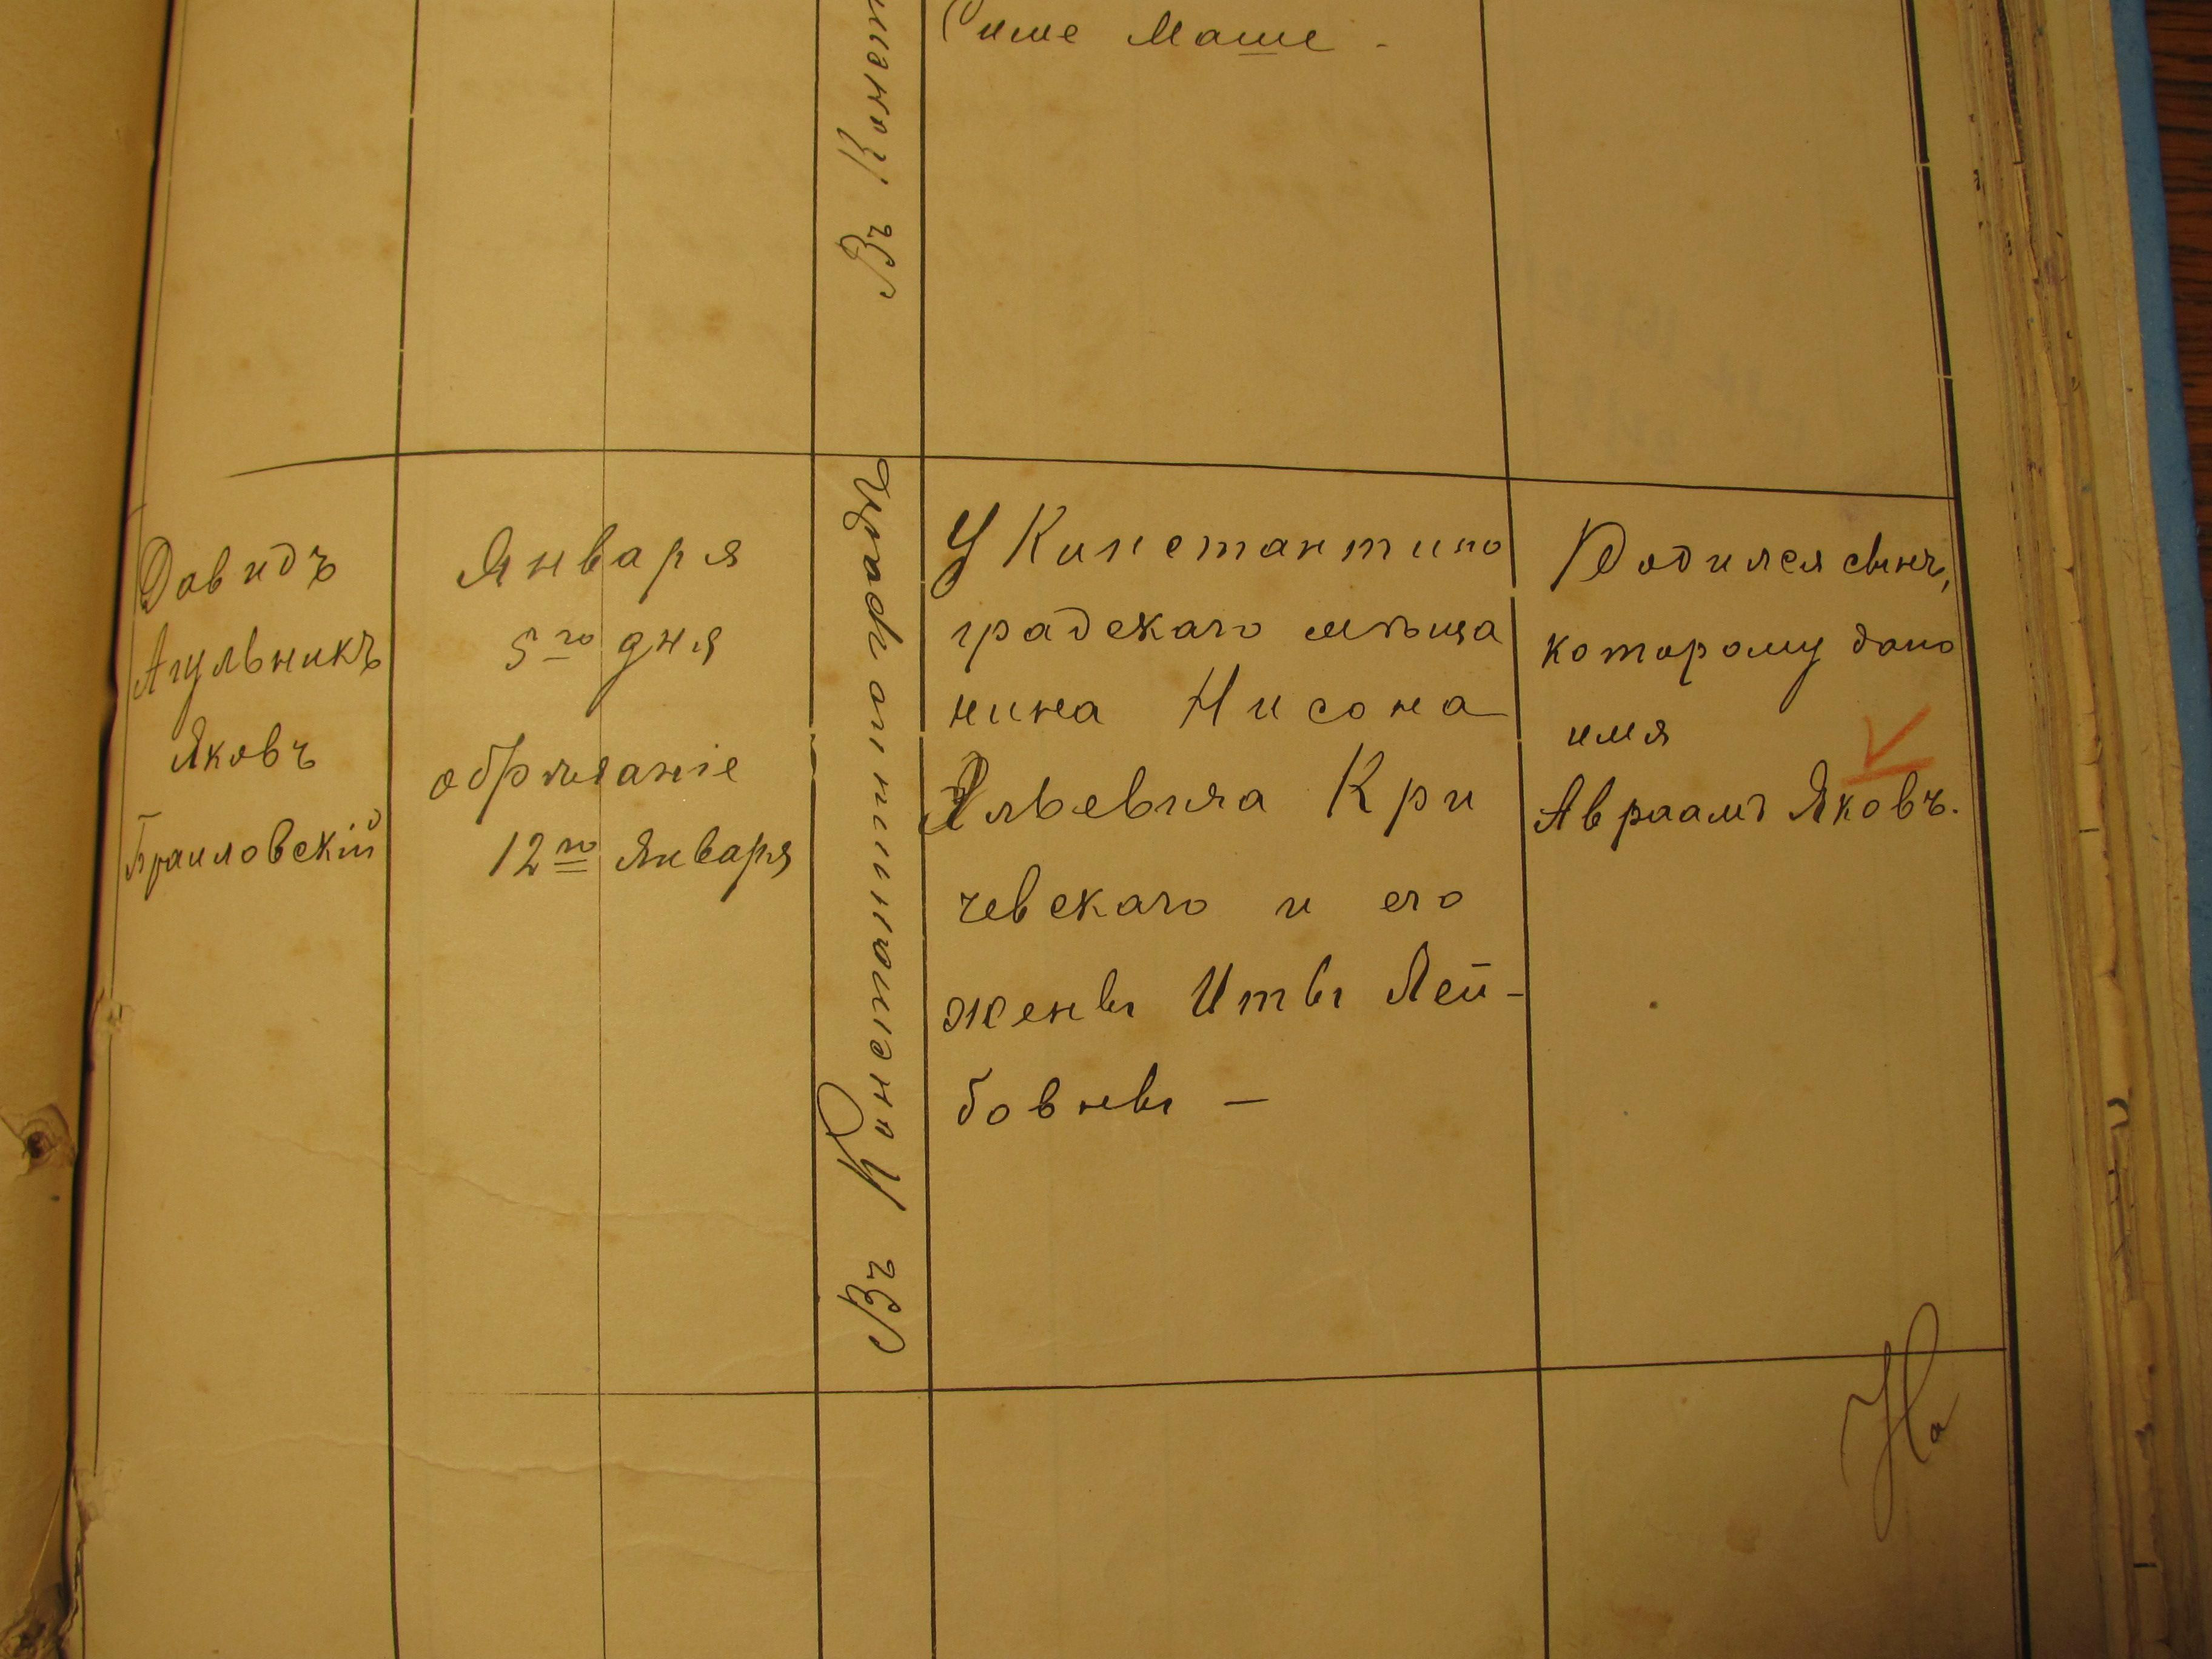 Симе Маше -
Въ Конст
Давидъ
Агульникъ
Яковъ
Браиловскій
Января
5го дня
обрѣзаніе
12го Января
Въ Константиноградѣ
У Константино
градскаго мѣща
нина Нисона
Эльевича Кри
чевскаго и его
жены Иты Лей-
бовны —
Родился сынъ,
которому дано
имя
Авраамъ Яковъ.
На